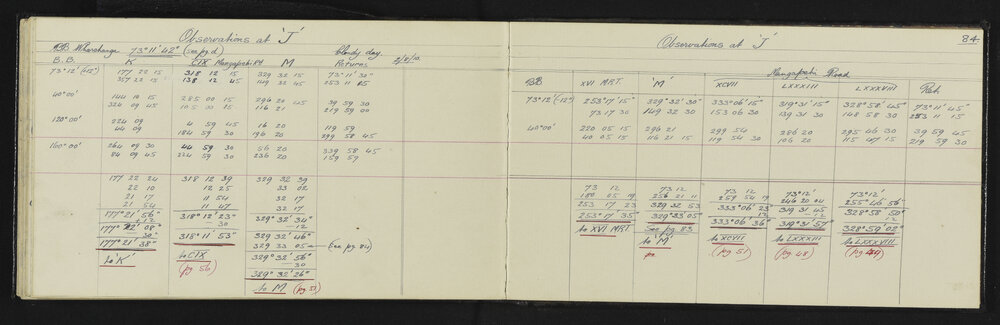 Observations at 'J'
BB Wharehanga 73° 11' 42" (see pg d) Cloudy day
B.B. K CIX Mangapehi Rd M Returns
73°12' (+15") 177 22 15 318 12 15 329 32 15 73° 11' 30"
357 22 15 138 12 45 149 32 45 253 11 45
40°00' 144 10 15 285 00 15 296 20 45 39 59 30
324 09 45 105 30 15 116 21 219 59 00
120°00' 224 09 4 59 45 16 20 119 59
44 09 184 59 30 196 20 299 58 45
160°00' 264 09 30 44 59 30 56 20 339 58 45
84 09 45 224 59 30 236 20 159 59
177 22 24 318 12 39 329 32 39
22 10 12 25 33 02
21 17 11 54 32 17
21 54 11 47 32 17
177° 21' 56" 318° 12' 23" 329° 32' 34"
12 30 12
177° 22' 08" 318° 11' 53" 329 32' 46"
30 329 33 05 (see pg 84)
177° 21' 38" to CIX 329° 32' 56"
to 'K' (pg 56) 30
329° 32' 26"
to M (pg 51)
84.
Observations at 'J'
Mangapehi Road
BB XVI MRT. 'M' XCVII LXXXIII LXXXVIII Ret.
73°12' (-12") 253° 17' 15" 329° 32' 30" 333° 06' 15" 319° 31' 15" 328° 58' 45" 73° 11' 45"
73 17 30 149 32 30 153 06 30 139 31 30 148 58 30 253 11 15
40°00' 220 05 15 296 21 299 54 286 20 295 46 30 39 59 45
40 05 15 116 21 15 119 54 30 106 20 115 47 15 219 59 30
73 12 73 12 73 12 73° 12' 73° 12'
180 05 19 256 21 11 259 54 19 246 20 04 255° 46' 56"
253 17 23 329 32 53 333° 06' 23" 319 31 45 328° 58' 50"
12 12 12
253° 17' 35" 329° 33' 05" 333° 06' 36" 319° 31' 57" 328° 59' 02"
to XVI MRT see pg 83 to XCVII to LXXXIII to LXXXVIII
to 'M' (pg 51) (pg 48) (pg 49)
pg